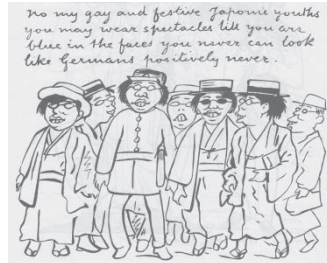 No my gay and festive Japonic youths
you may wear spectacles till you are
blue in the faces you never can look
like Germans positively never.